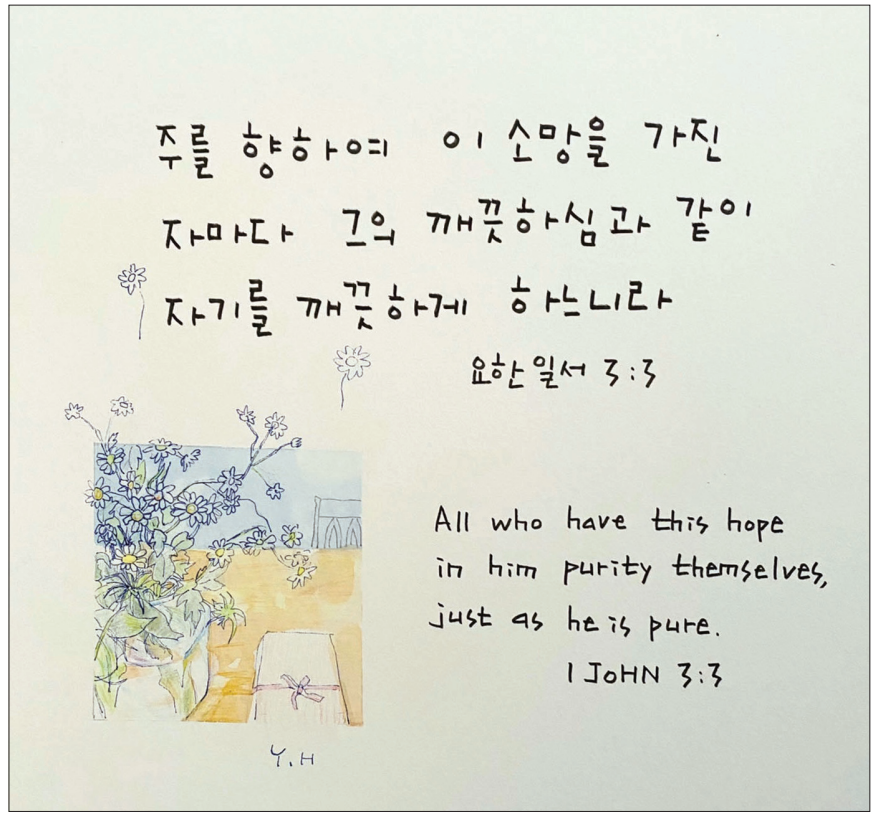 주를 향하여 이 소망을 가진
자마다 그의 깨끗하심과 같이
자기를 깨끗하게 하느니라
요한일서 3:3
All who have this hope
in him purity themselves,
just as he is pure.
1 JOHN 3:3
Y.H